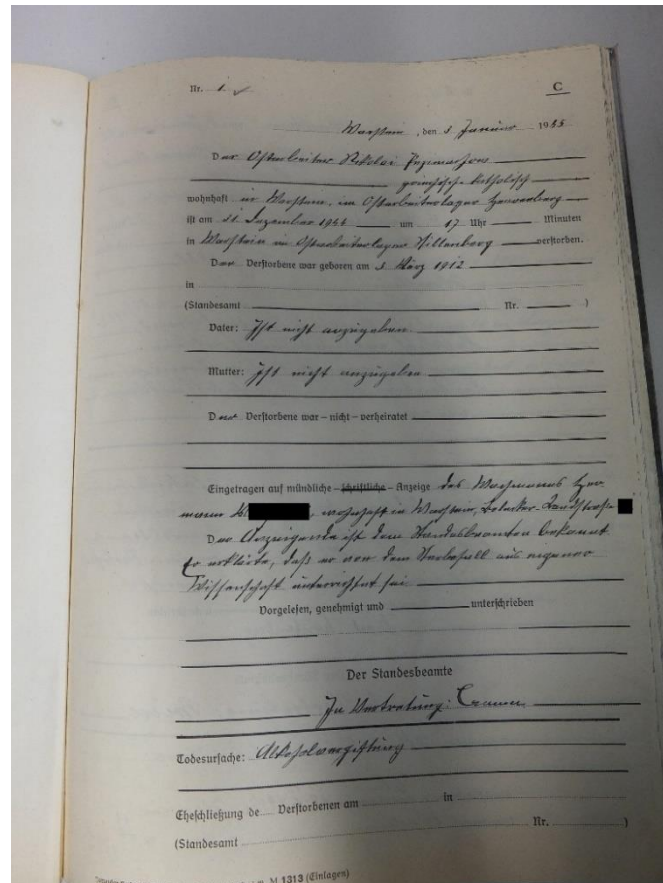 Nr. 1 C
Warstein, den 3 Januar 1945
Der Ostarbeiter Nikolai
griechisch katholisch
wohnhaft in Warstein, im Ostarbeiterlager
ist am 31 Dezember 1944 um 17 Uhr Minuten
in Warstein im Ostarbeiterlager Hillenberg verstorben.
Der Verstorbene war geboren am 3 März 1912
in
(Standesamt Nr. )
Vater: Ist nicht anzugeben
Mutter: Ist nicht anzugeben
Der Verstorbene war – nicht – verheiratet
Eingetragen auf mündliche – schriftliche – Anzeige des Wachmanns Her-
mann, wohnhaft in Warstein, Belecker-Landstraße
Der Anzeigende ist dem Standesbeamten bekannt.
Er erklärte, daß er von dem Sterbefall aus eigener
Wissenschaft unterrichtet sei.
Vorgelesen, genehmigt und unterschrieben
Der Standesbeamte
In Vertretung:
Todesursache: Alkoholvergiftung
Eheschließung de Verstorbenen am in
(Standesamt Nr. )
1313 (Einlagen)